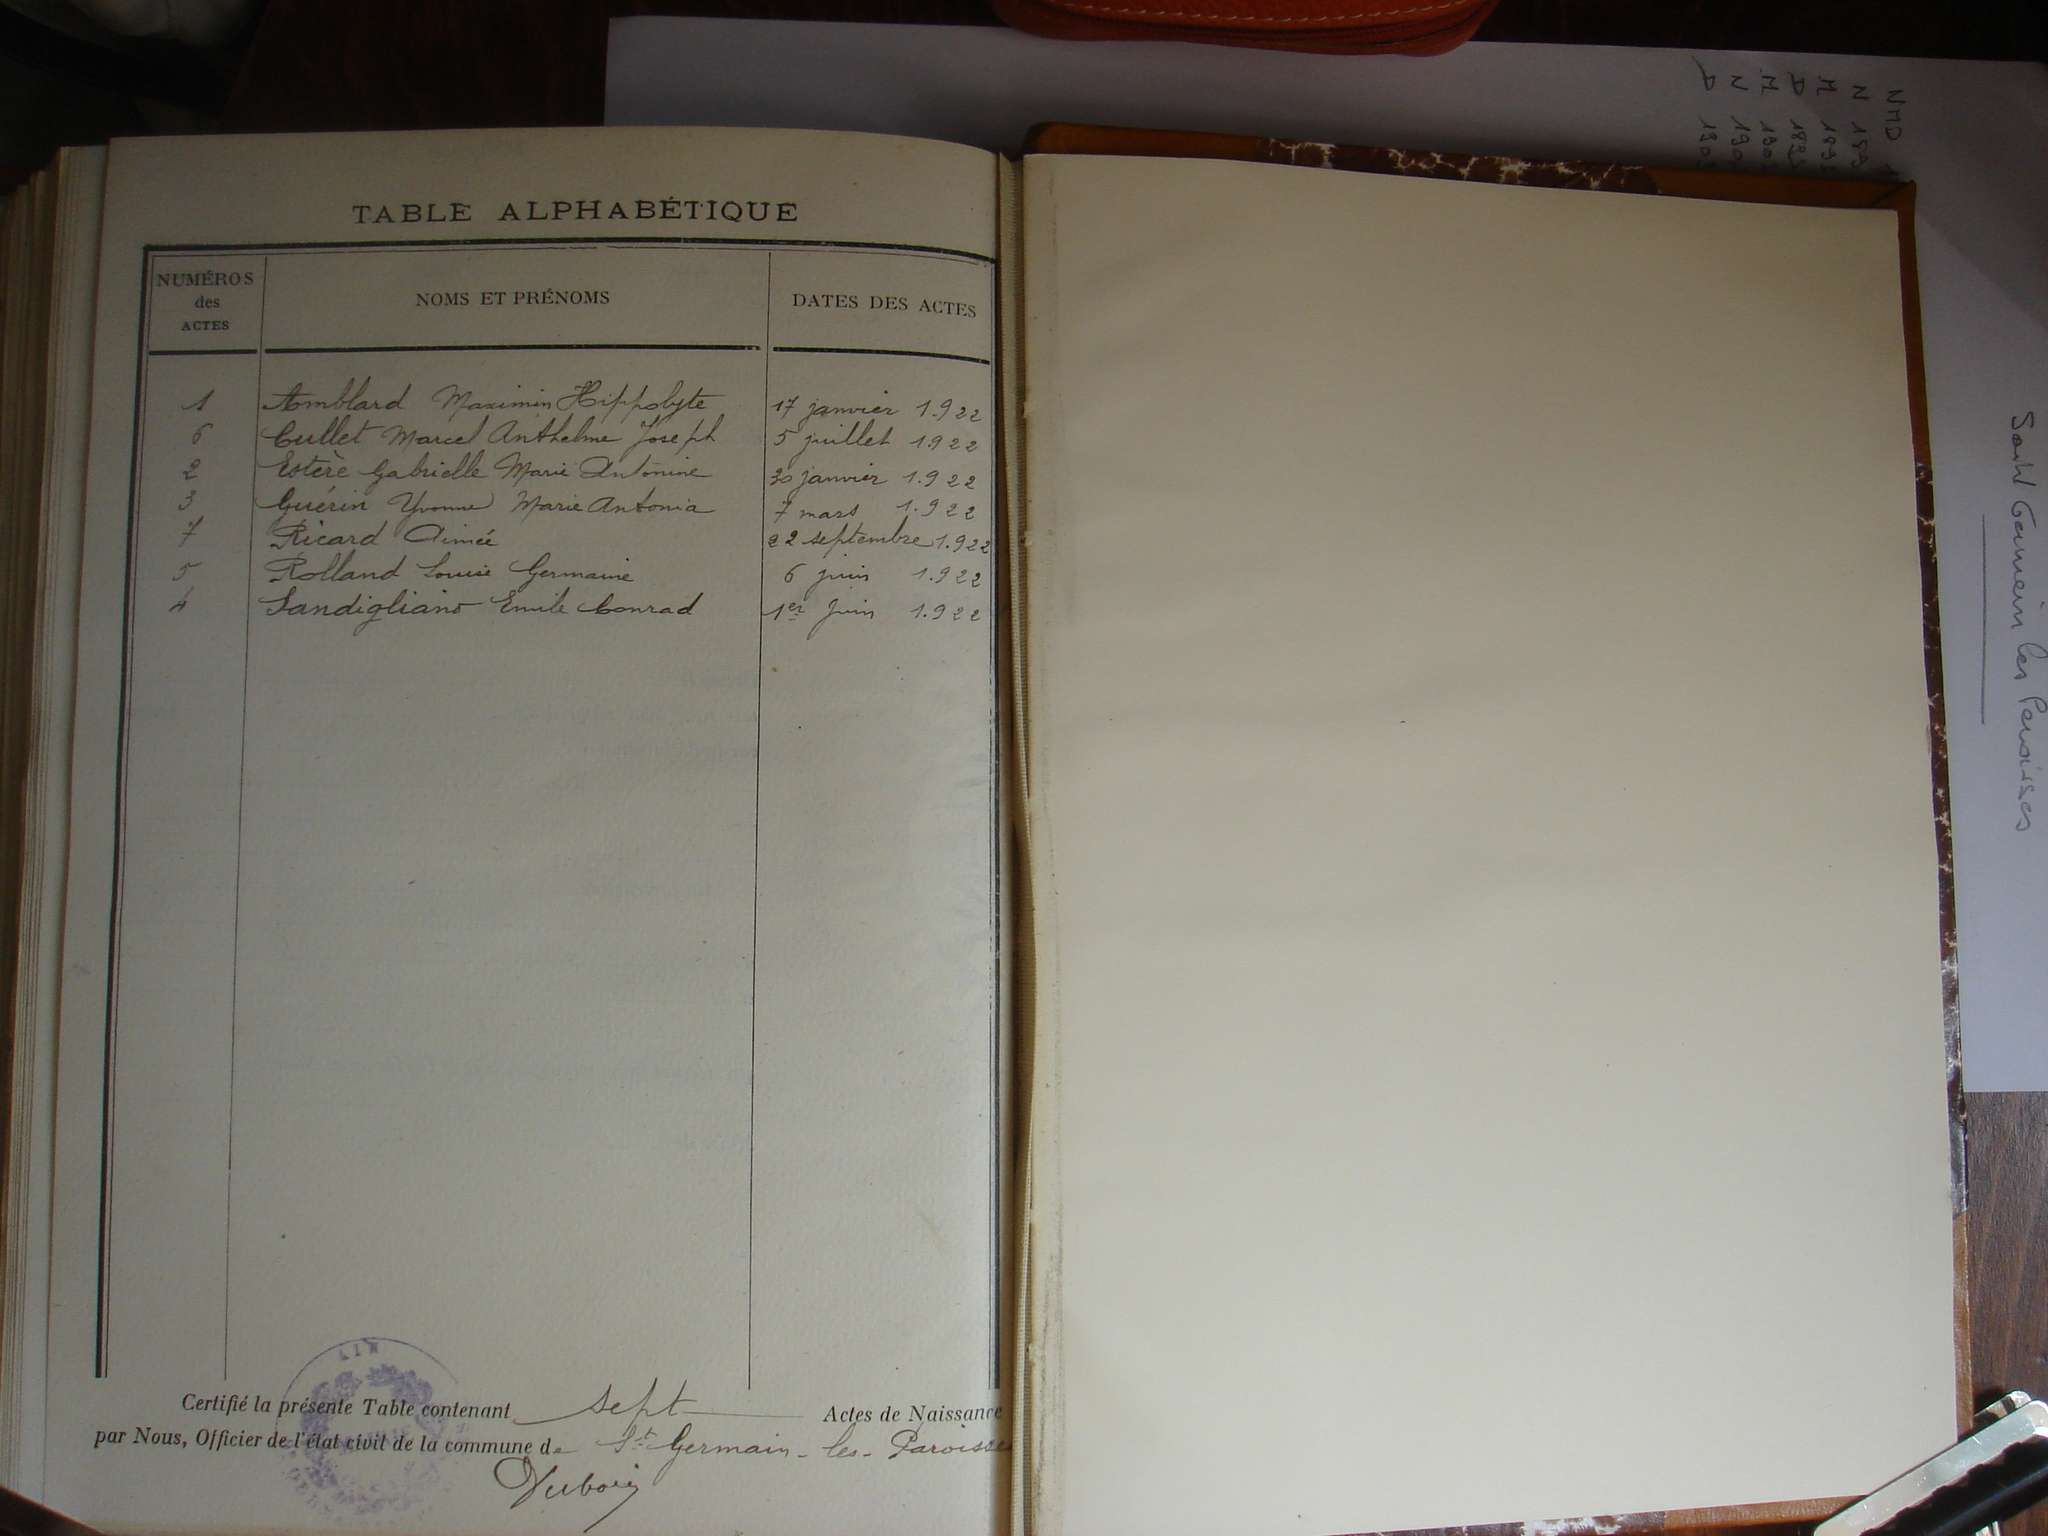 TABLE ALPHABÉTIQUE
NUMÉROS
des
ACTES
NOMS ET PRÉNOMS
DATES DES ACTES
1 Amblard Maximin Hippolyte 17 janvier 1.922
6 Cullet Marcel Anthelme Joseph 5 juillet 1922
2 Estère Gabrielle Marie Antonine 30 janvier 1.922
3 Guérin Yvonne Marie Antonia 7 mars 1.922
7 Ricard Aimée 22 septembre 1.922
5 Rolland Louise Germaine 6 juin 1.922
4 Sandigliano Emile Conrad 1er Juin 1.922
Certifié la présente Table contenant sept Actes de Naissance
par Nous, Officier de l'état civil de la commune de St Germain-les-Paroisses
Dubois
AIN
NMD
N 189
M 189
D 189
M 190
N 190
D 190
Saint Germain les Paroisses